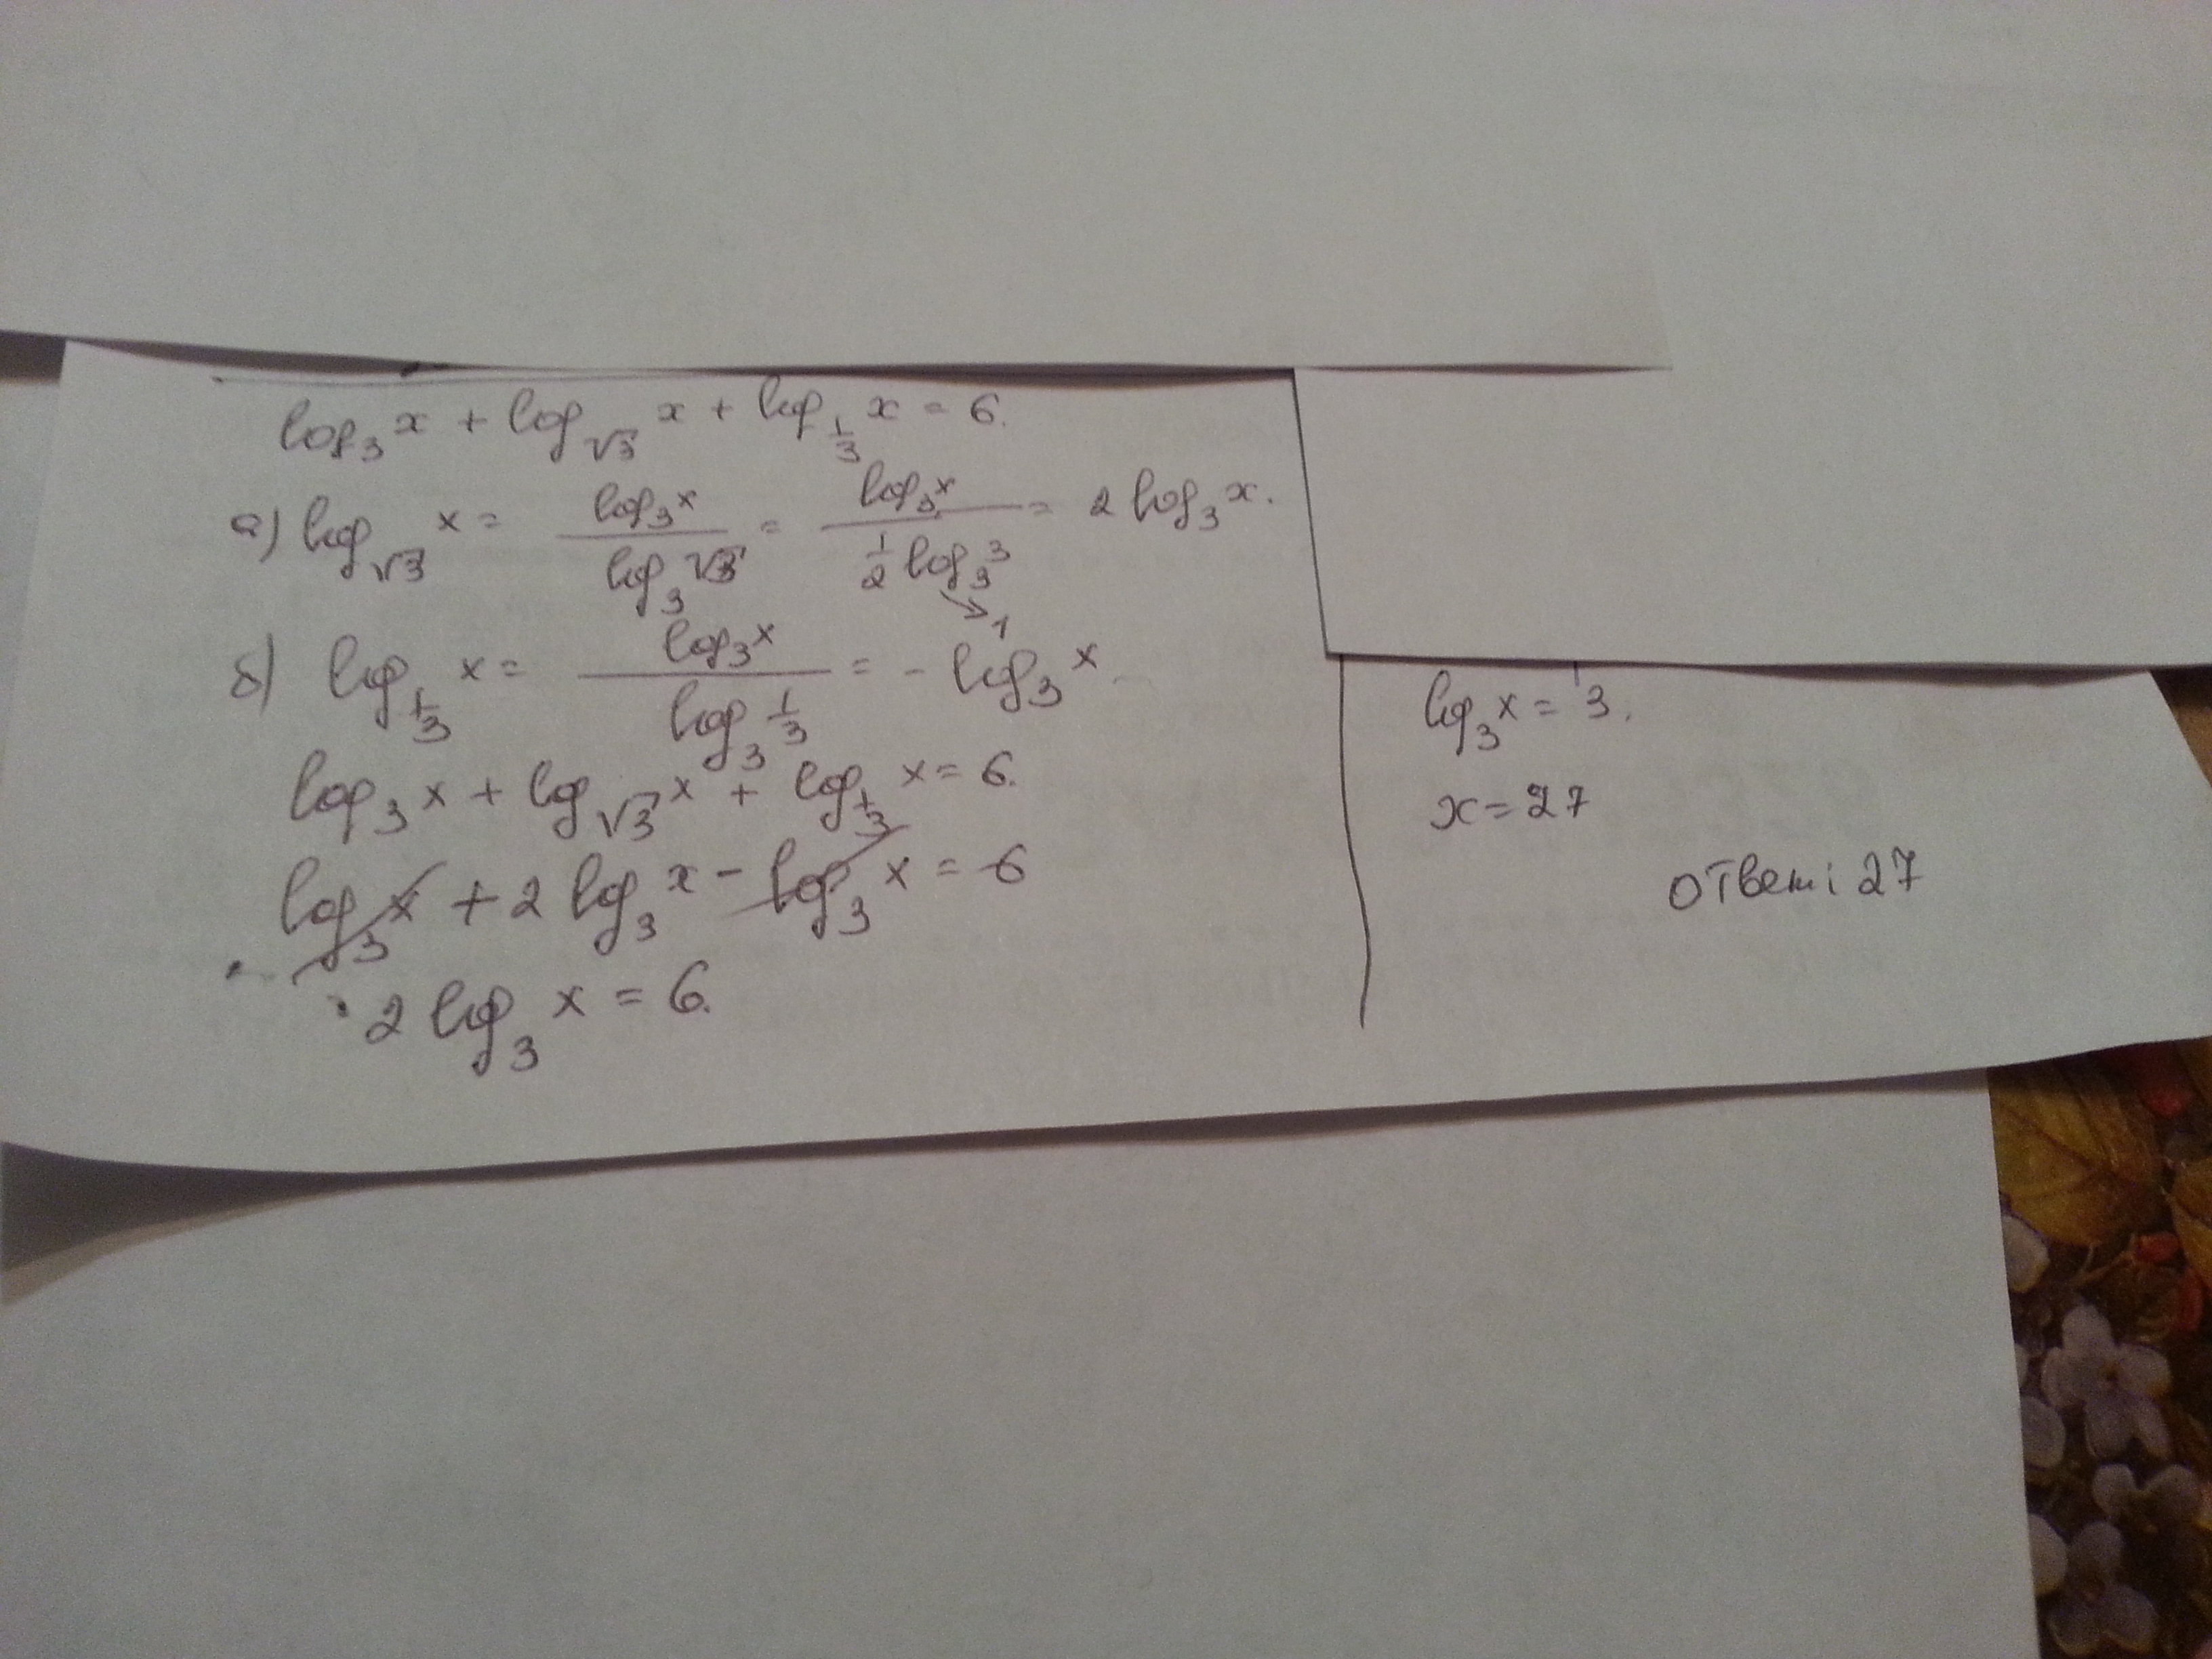 log₃x + log_√3 x + log_1/3 x = 6.
а) log_√3 x = log₃x / log₃√3 = log₃x / (1/2 log₃3) = 2 log₃x.
→1
б) log_1/3 x = log₃x / log₃ 1/3 = - log₃x
log₃x + log_√3 x + log_1/3 x = 6.
log₃x + 2 log₃x - log₃x = 6
2 log₃x = 6.
log₃x = 3.
x = 27
Ответ: 27